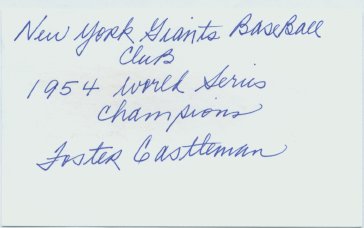 New York Giants BaseBall
Club
1954 World Series
Champions
Foster Castleman